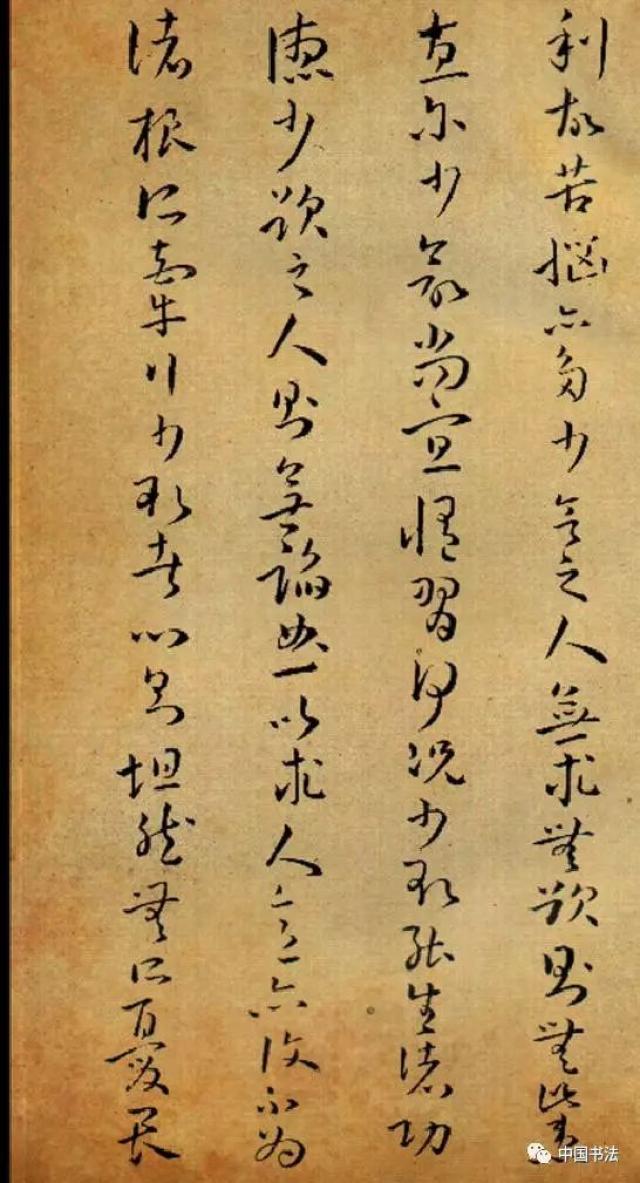 利故苦惱亦多少欲之人無求無欲則無此患
直尔少欲尚宜修習何況少欲能生諸功
德少欲之人則無諂曲以求人意亦復不為
諸根所牽行少欲者心則坦然無所憂畏
中国书法